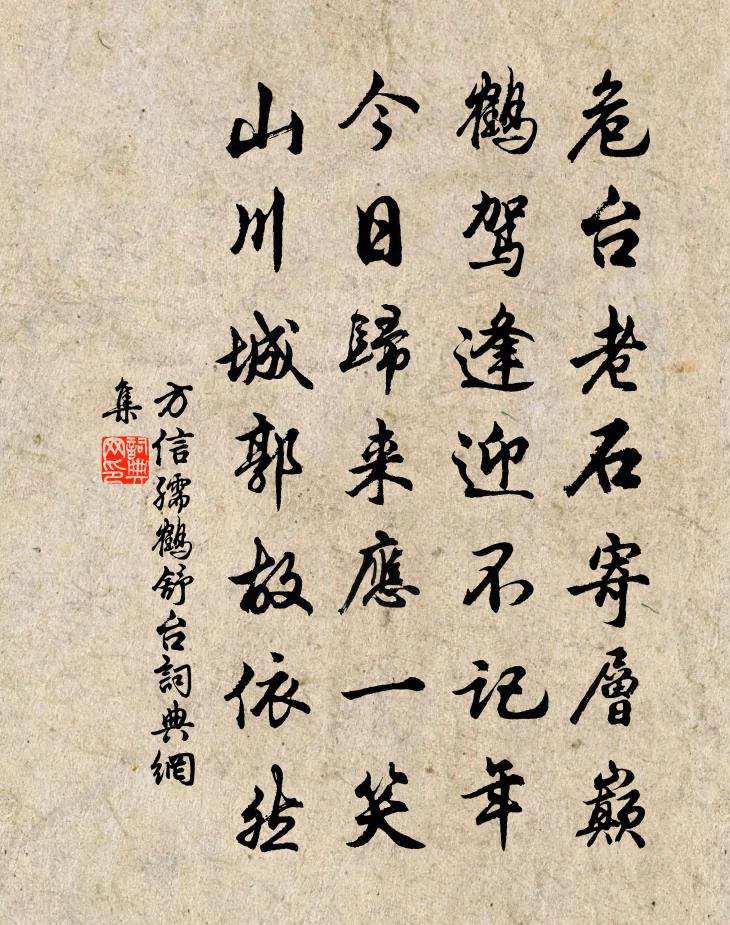 危台老石寄層巔
鶴駕逢迎不記年
今日歸来應一笑
山川城郭故依然
方信孺鶴舒台詞典網
集
詞典网印